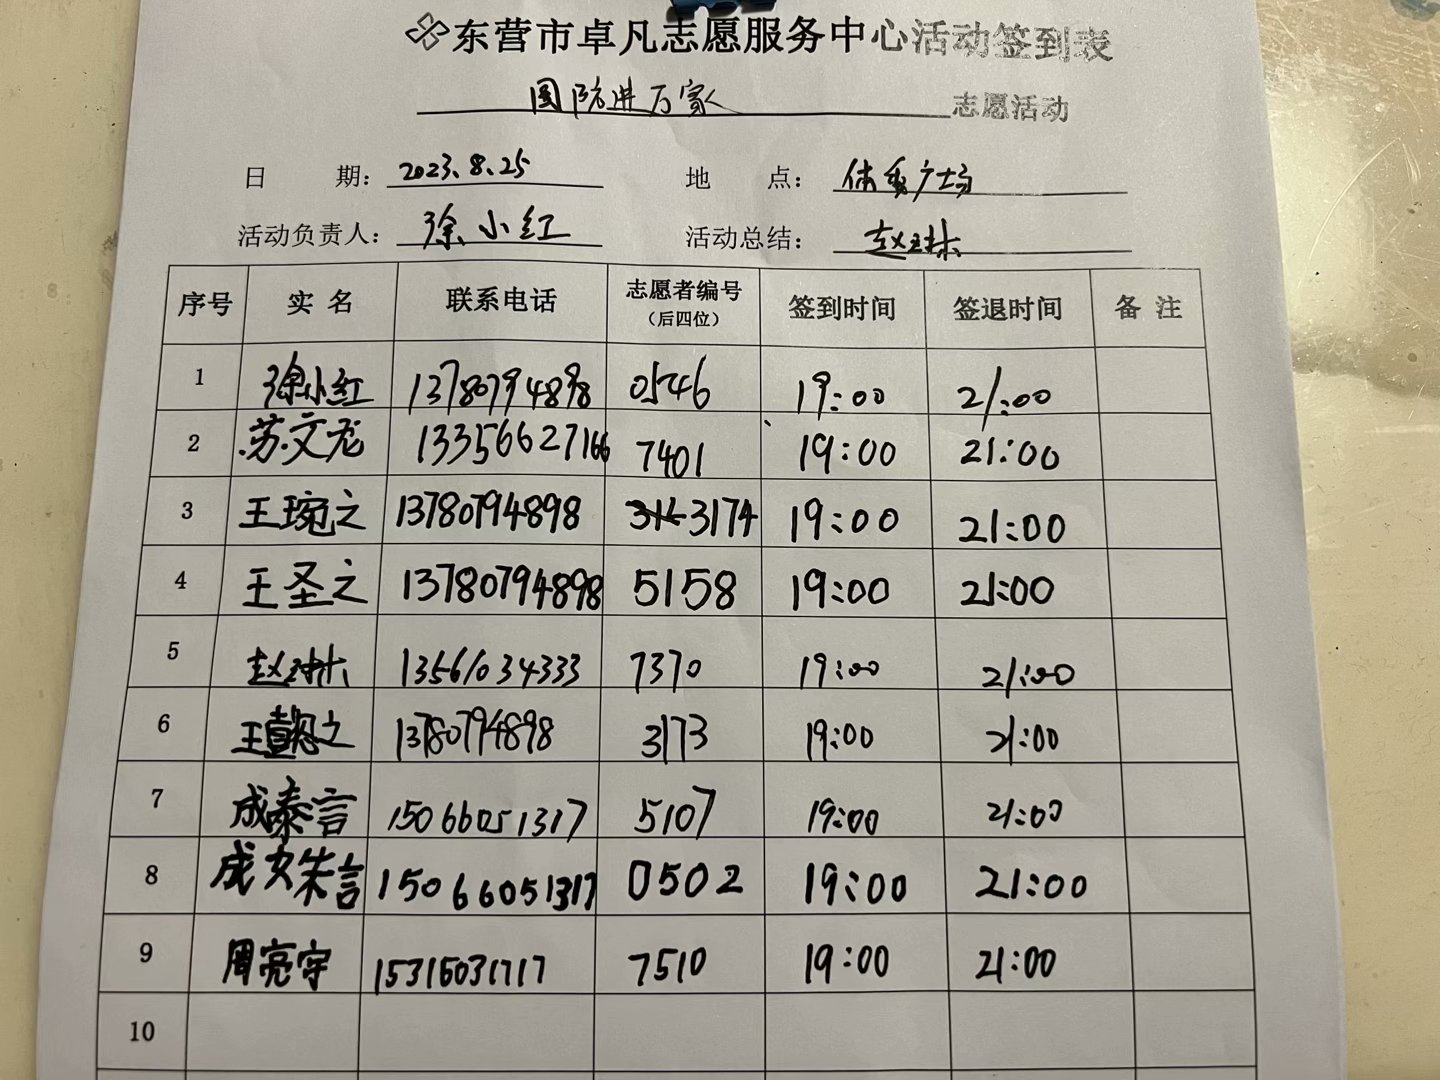 东营市卓凡志愿服务中心活动签到表
国防进万家 志愿活动
日 期: 2023.8.25 地 点: 体育广场
活动负责人: 徐小红 活动总结:
序号 实名 联系电话 志愿者编号(后四位) 签到时间 签退时间 备注
1 徐小红 13780794898 0546 19:00 21:00
2 苏文龙 13356627166 7401 19:00 21:00
3 王琬之 13780794898 3174 19:00 21:00
4 王圣之 13780794898 5158 19:00 21:00
5 13561034333 7370 19:00 21:00
6 王懿之 13780794898 3173 19:00 21:00
7 成泰言 15066051317 5107 19:00 21:00
8 成姝言 15066051317 0502 19:00 21:00
9 周亮宇 7510 19:00 21:00
10